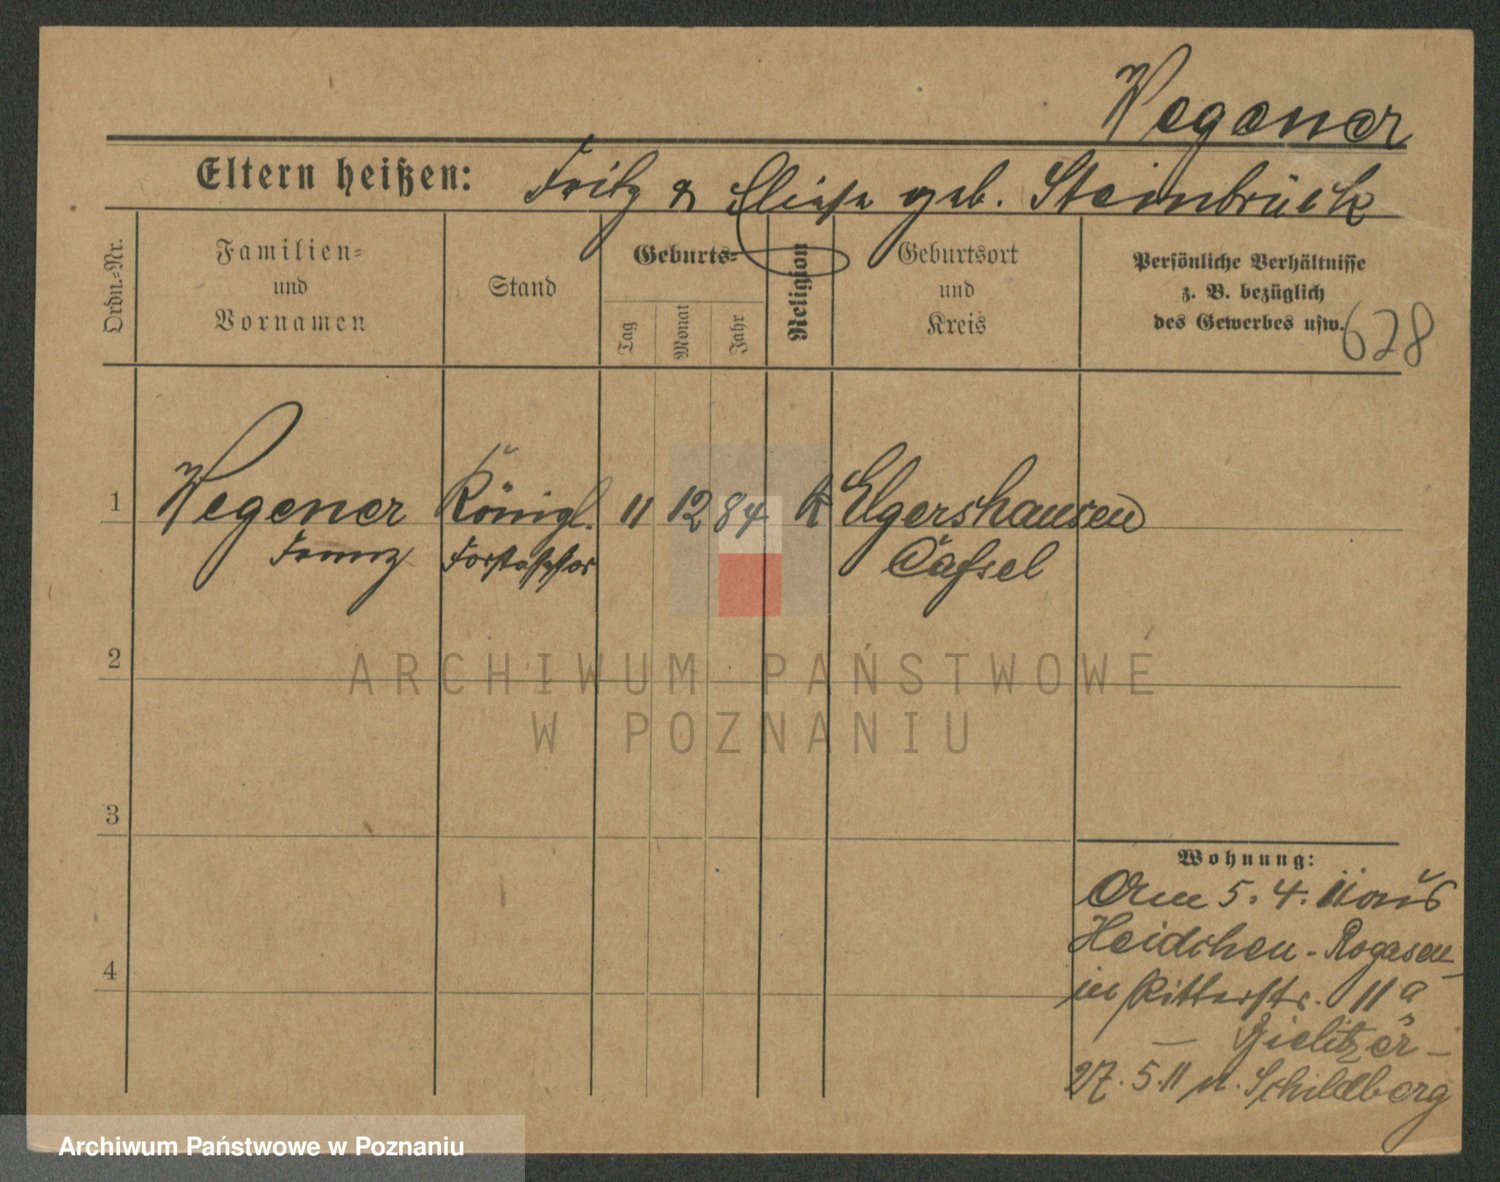 Wegener
Eltern heißen: Fritz & Eliese geb. Steinbrück
Ordn.-Nr.
Familien-
und
Vornamen
Stand
Geburts-
Tag
Monat
Jahr
Religion
Geburtsort
und
Kreis
Persönliche Verhältnisse
z. B. bezüglich
des Gewerbes usw.
628
1 Wegener Königl. 11 12 84 K Elgershausen
Franz Forstassessor Cassel
2
ARCHIWUM PAŃSTWOWE
W POZNANIU
3
Wohnung:
Am 5. 4. 11 aus
Heidchen - Rogasen
in Ritterstr. 11a
— Gielitzer —
27. 5. 11 n. Schildberg
4
Archiwum Państwowe w Poznaniu